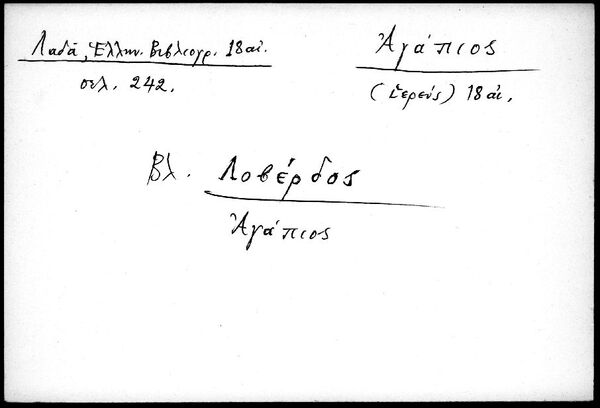 Λαδᾶ, Ἑλλην. Βιβλιογρ. 18 αἰ.
σελ. 242.
Ἀγάπιος
(ἱερεύς) 18 αἰ.
Βλ. Λοβέρδος
Ἀγάπιος